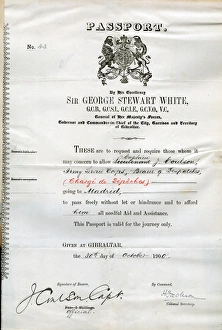 PASSPORT.
No. 43
By His Excellency
SIR GEORGE STEWART WHITE,
G.C.B., G.C.S.I., G.C.I.E., G.C.V.O., V.C.,
General of His Majesty's Forces,
Governor and Commander-in-Chief of the City, Garrison and Territory
of Gibraltar.
THESE are to request and require those whom it
Captain
may concern to allow Lieutenant J. Coulson,
Army Service Corps, Bearer of Despatches,
(Chargé de Dépêches)
going to Madrid,
to pass freely without let or hindrance and to afford
him all needful Aid and Assistance.
This Passport is valid for the journey only.
GIVEN AT GIBRALTAR,
the 30th day of October 190
Signature of Bearer
J Coulson Capt.
By Command,
Official.
Colonial Secretary.